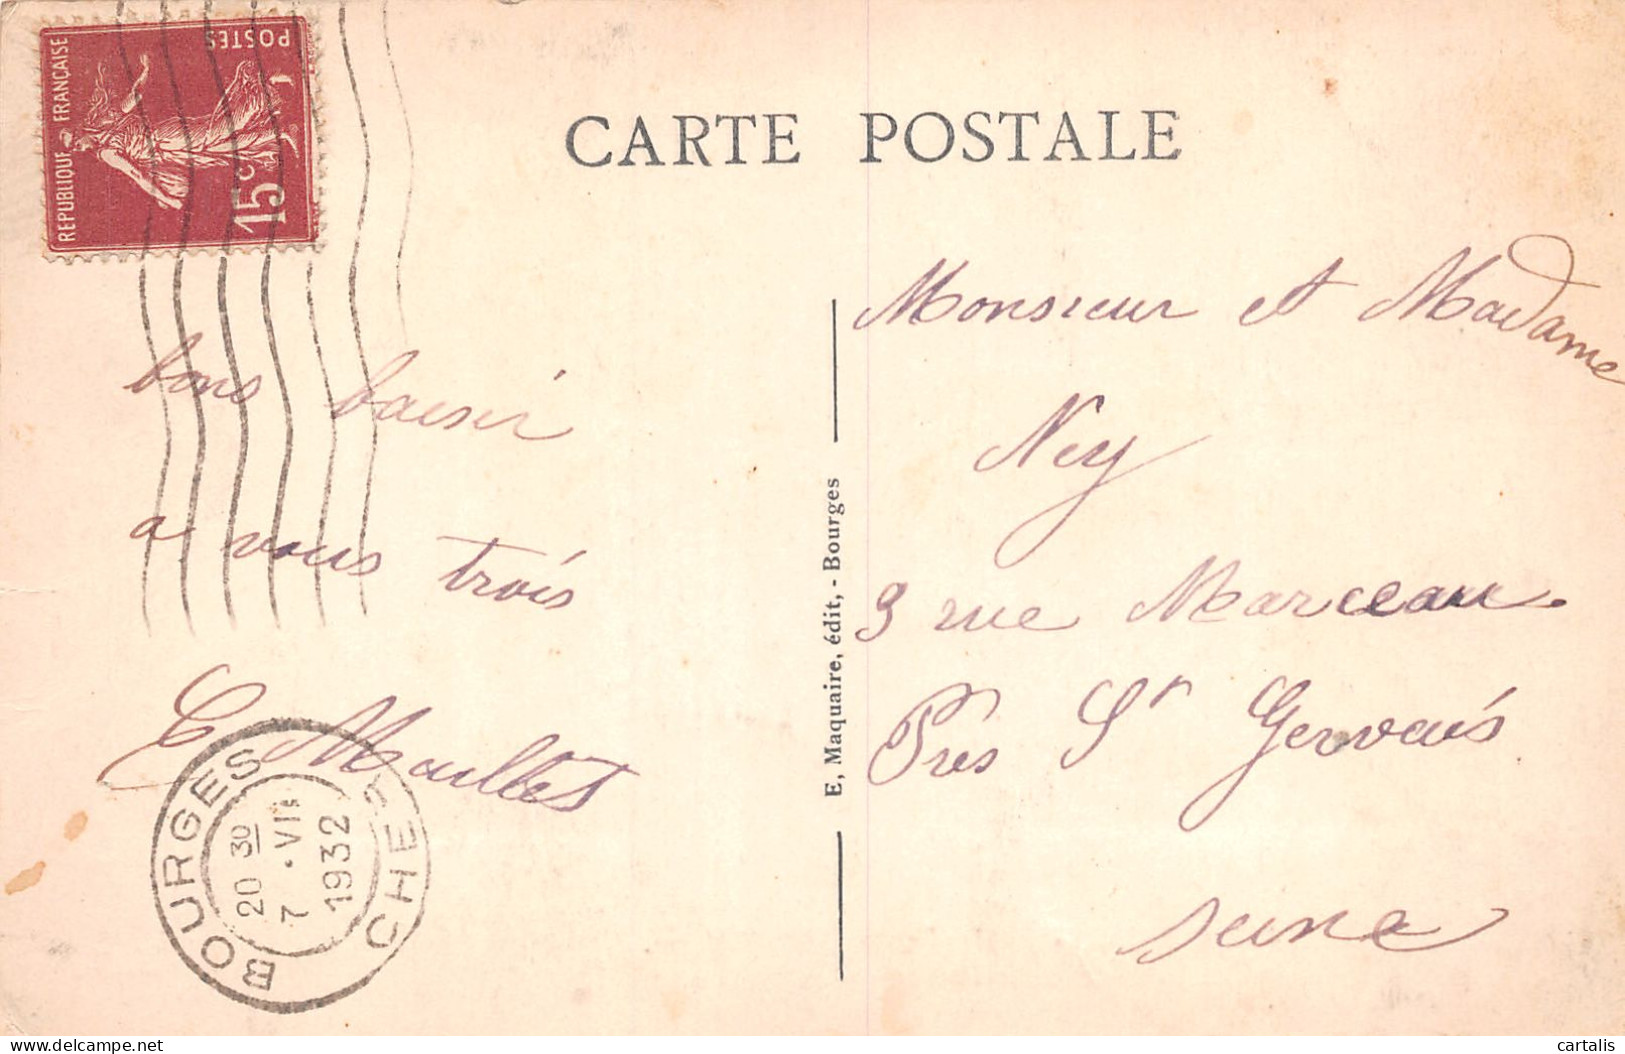 REPUBLIQUE FRANÇAISE
POSTES
15c
CARTE POSTALE
bons baisir
a vous trois
E Maillet
BOURGES CHER
20 30
7 · VII
1932
E, Maquaire, édit, - Bourges
Monsieur et Madame
Ney
9 rue Marceau.
Près St Gervais
Seine
cartalis
delcampe.net